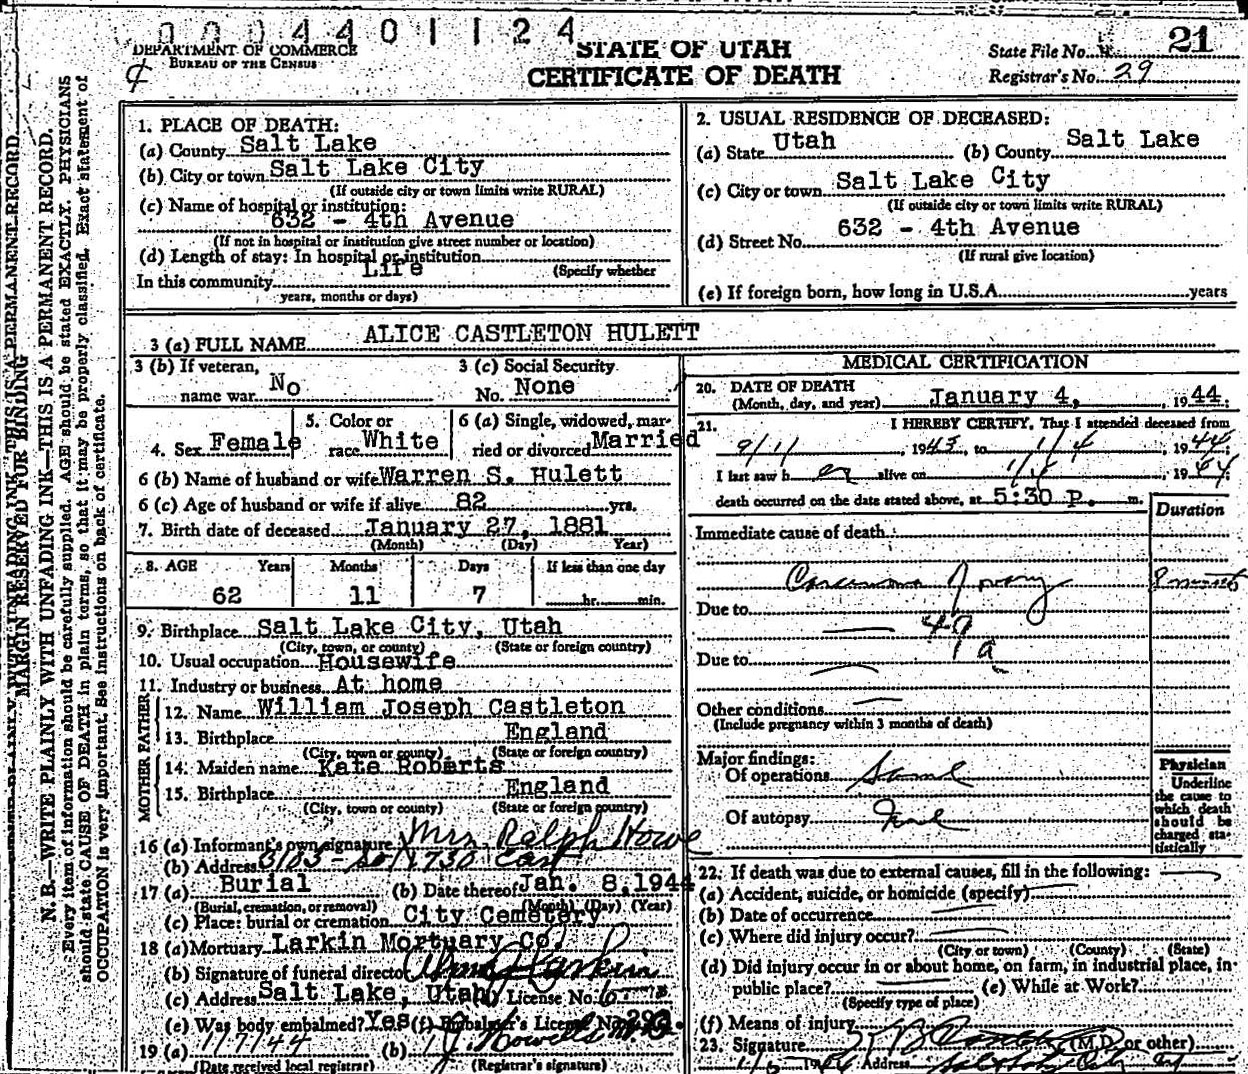 0004401124
DEPARTMENT OF COMMERCE
BUREAU OF THE CENSUS
STATE OF UTAH
CERTIFICATE OF DEATH
State File No. 21
Registrar's No. 29
MARGIN RESERVED FOR BINDING
N. B.—WRITE PLAINLY WITH UNFADING INK—THIS IS A PERMANENT RECORD.
Every item of information should be carefully supplied. AGE should be stated EXACTLY. PHYSICIANS
should state CAUSE OF DEATH in plain terms, so that it may be properly classified. Exact statement of
OCCUPATION is very important. See instructions on back of certificate.
1. PLACE OF DEATH:
(a) County Salt Lake
(b) City or town Salt Lake City
(If outside city or town limits write RURAL)
(c) Name of hospital or institution:
632 - 4th Avenue
(If not in hospital or institution give street number or location)
(d) Length of stay: In hospital or institution
In this community Life (Specify whether
years, months or days)
2. USUAL RESIDENCE OF DECEASED:
(a) State Utah (b) County Salt Lake
(c) City or town Salt Lake City
(If outside city or town limits write RURAL)
(d) Street No. 632 - 4th Avenue
(If rural give location)
(e) If foreign born, how long in U.S.A. years
3 (a) FULL NAME ALICE CASTLETON HULETT
3 (b) If veteran,
name war. No
3 (c) Social Security
No. None
4. Sex Female
5. Color or
race White
6 (a) Single, widowed, mar-
ried or divorced Married
6 (b) Name of husband or wife Warren S. Hulett
6 (c) Age of husband or wife if alive 82 yrs.
7. Birth date of deceased January 27, 1881
(Month) (Day) (Year)
8. AGE Years Months Days If less than one day
62 11 7 hr. min.
9. Birthplace Salt Lake City, Utah
(City, town, or county) (State or foreign country)
10. Usual occupation Housewife
11. Industry or business At home
FATHER
12. Name William Joseph Castleton
13. Birthplace England
(City, town or county) (State or foreign country)
MOTHER
14. Maiden name Kate Roberts
15. Birthplace England
(City, town or county) (State or foreign country)
16 (a) Informant's own signature Mrs. Ralph Howe
(b) Address 3105 - So 1730 East
17 (a) Burial (b) Date thereof Jan. 8, 1944
(Burial, cremation, or removal) (Month) (Day) (Year)
(c) Place: burial or cremation City Cemetery
18 (a) Mortuary Larkin Mortuary Co.
(b) Signature of funeral director Larkin
(c) Address Salt Lake, Utah License No.
(e) Was body embalmed? Yes (f) Embalmer's License No.
19 (a) 1/7/44 (b)
(Date received local registrar) (Registrar's signature)
MEDICAL CERTIFICATION
20. DATE OF DEATH
(Month, day, and year) January 4, 1944.
21. I HEREBY CERTIFY, That I attended deceased from
9/11, 1943, to 1/4, 1944
I last saw her alive on 1/4, 1944
death occurred on the date stated above, at 5:30 p. m.
Duration
Immediate cause of death
Carcinoma
Due to
49 a
Due to
Other conditions
(Include pregnancy within 3 months of death)
Major findings:
Of operations
Of autopsy
Physician
Underline
the cause to
which death
should be
charged sta-
tistically
22. If death was due to external causes, fill in the following:
(a) Accident, suicide, or homicide (specify)
(b) Date of occurrence
(c) Where did injury occur?
(City or town) (County) (State)
(d) Did injury occur in or about home, on farm, in industrial place, in
public place? (e) While at Work?
(Specify type of place)
(f) Means of injury
23. Signature (M.D. or other)
Address Salt Lake City